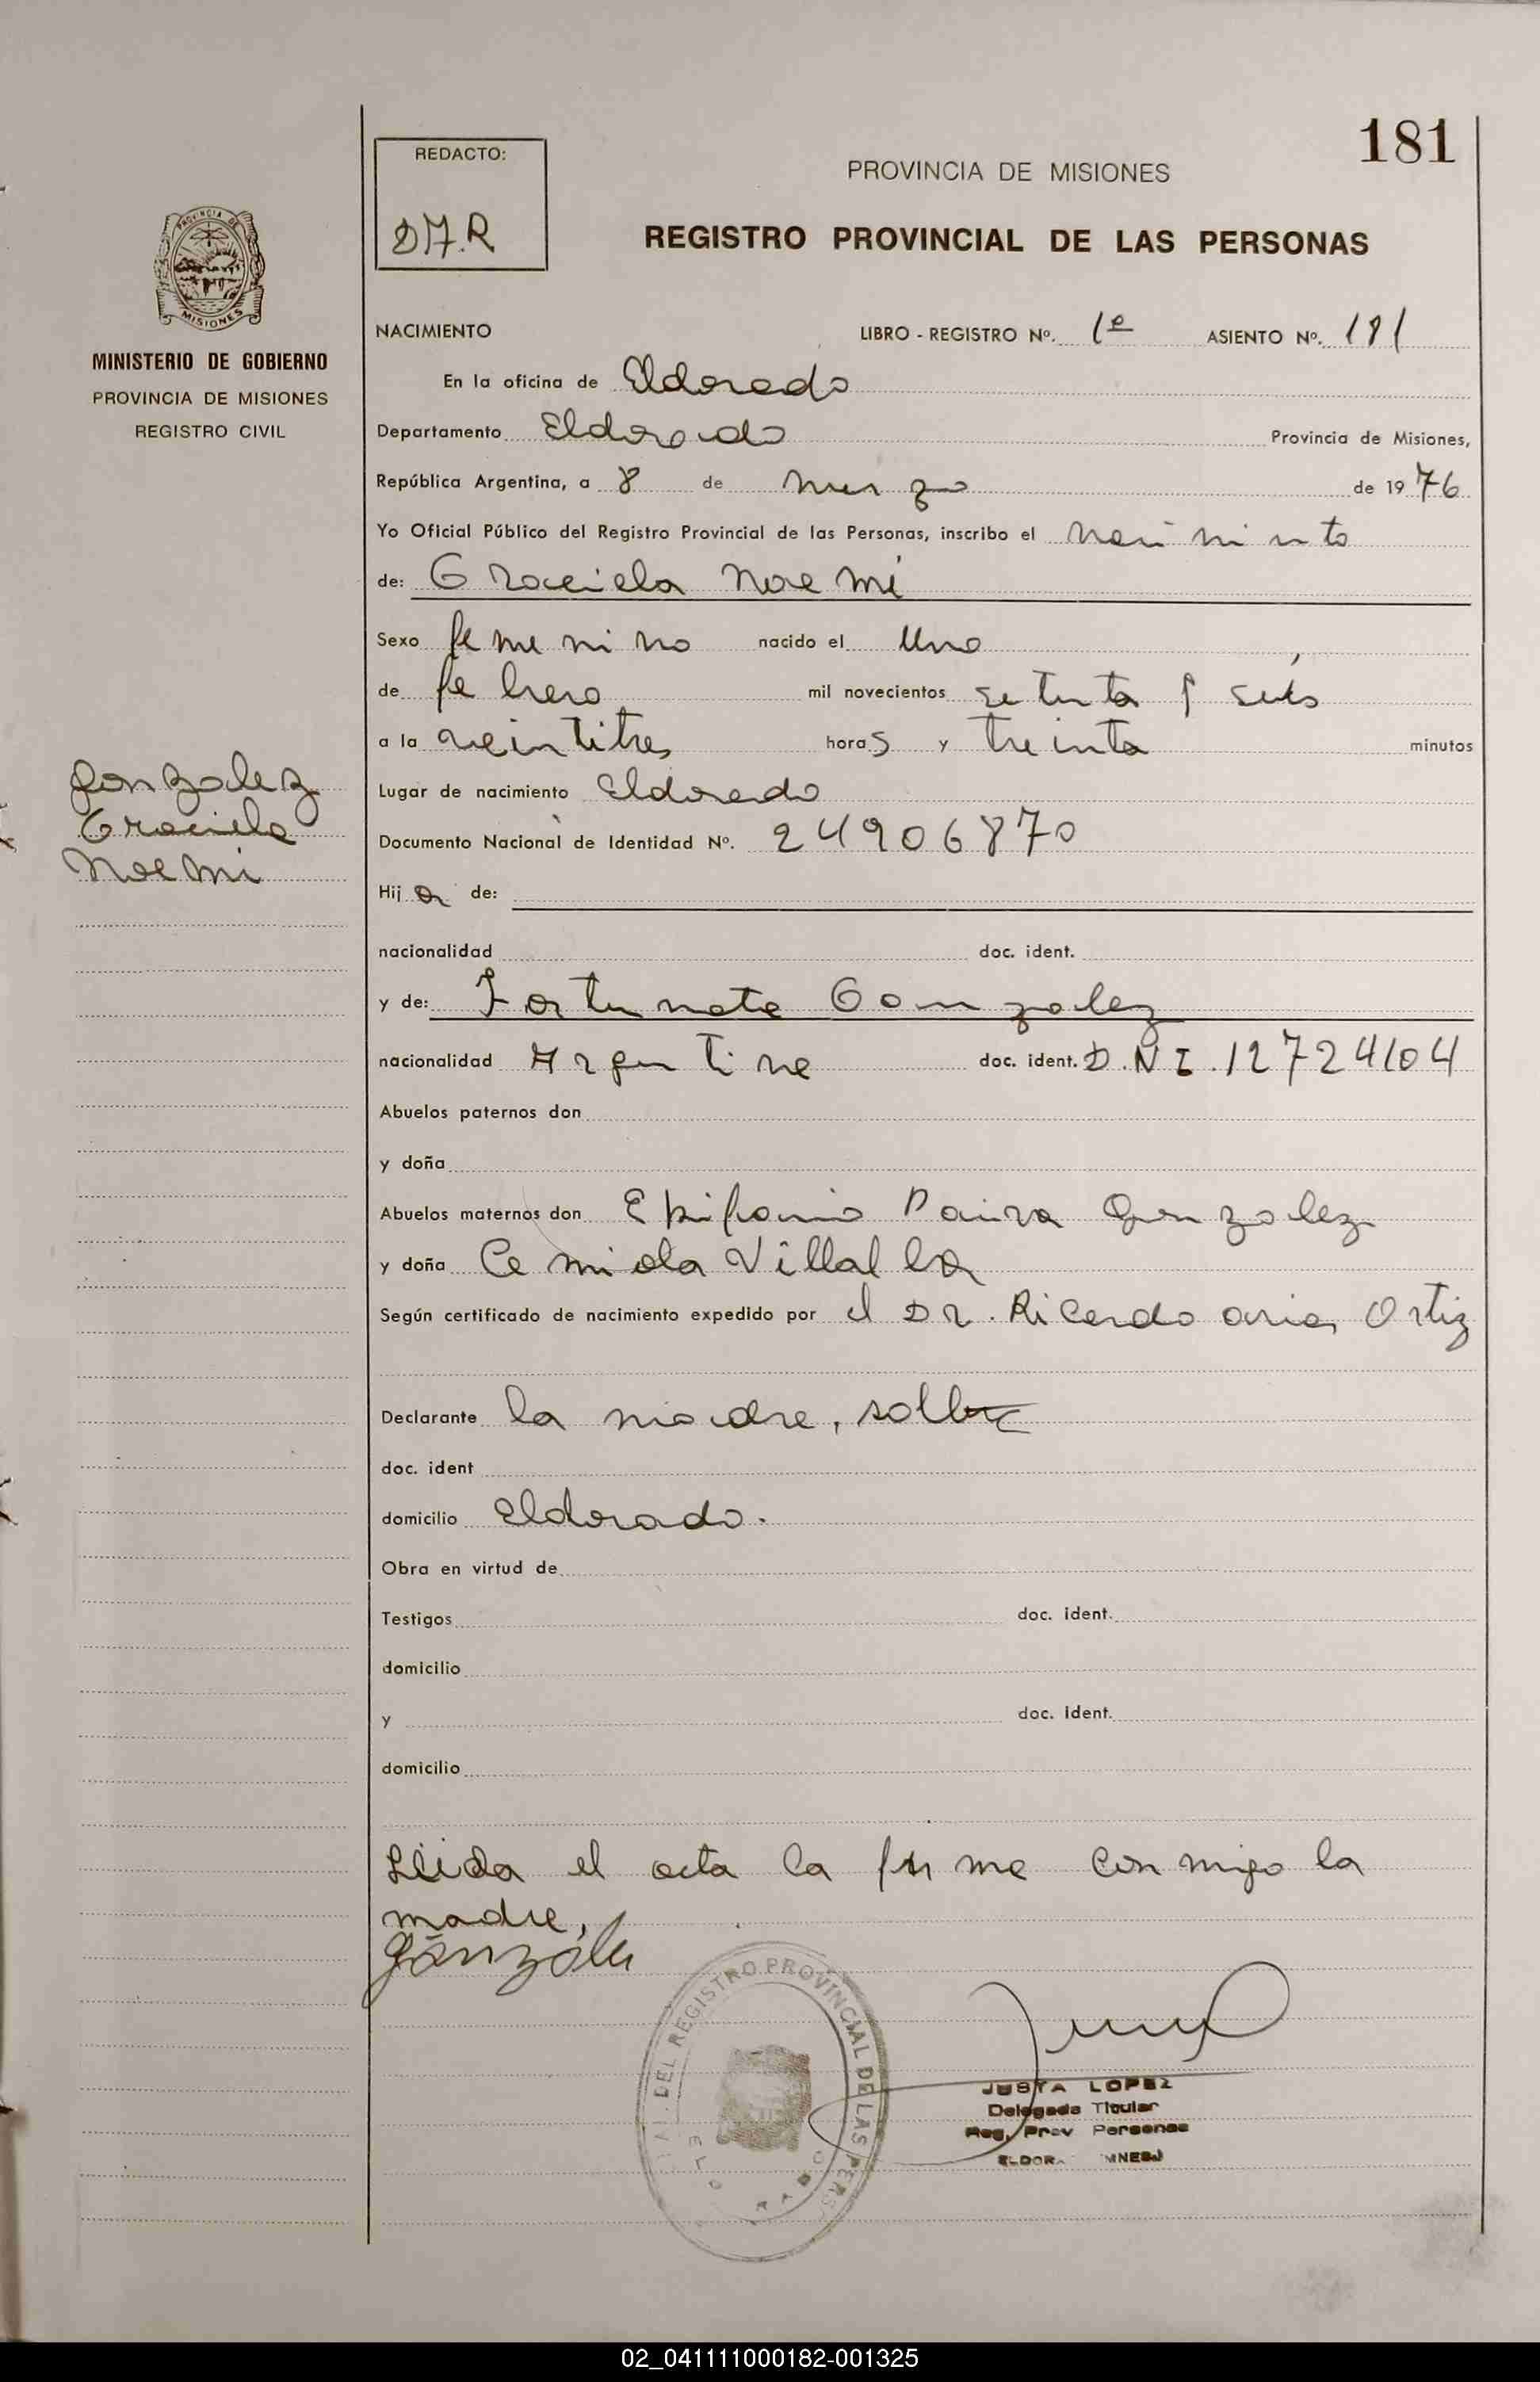 181
REDACTO:
D.M.R
PROVINCIA DE MISIONES
REGISTRO PROVINCIAL DE LAS PERSONAS
PROVINCIA DE
MISIONES
MINISTERIO DE GOBIERNO
PROVINCIA DE MISIONES
REGISTRO CIVIL
NACIMIENTO LIBRO - REGISTRO Nº. 1º ASIENTO Nº. 181
En la oficina de Eldorado
Departamento Eldorado Provincia de Misiones,
República Argentina, a 8 de marzo de 1976
Yo Oficial Público del Registro Provincial de las Personas, inscribo el nacimiento
de: Graciela Noemi
Sexo femenino nacido el Uno
de febrero mil novecientos setenta y seis
a la veintitres horas y treinta minutos
Gonzalez
Graciela
Noemi
Lugar de nacimiento Eldorado
Documento Nacional de Identidad Nº. 24906870
Hija de:
nacionalidad doc. ident.
y de: Fortunata Gonzalez
nacionalidad Argentina doc. ident. D.N.I. 12724104
Abuelos paternos don
y doña
Abuelos maternos don Epifanio Paiva Gonzalez
y doña Villalba
Según certificado de nacimiento expedido por el Dr. Ricardo arias Ortiz
Declarante la madre, soltera
doc. ident
domicilio Eldorado.
Obra en virtud de
Testigos doc. ident.
domicilio
y doc. ident.
domicilio
Leida el acta la firma conmigo la
madre,
González
DEL REGISTRO PROVINCIAL DE LAS PERS
JUSTA LOPEZ
Delegada Titular
Reg. Prov Personas
02_041111000182-001325